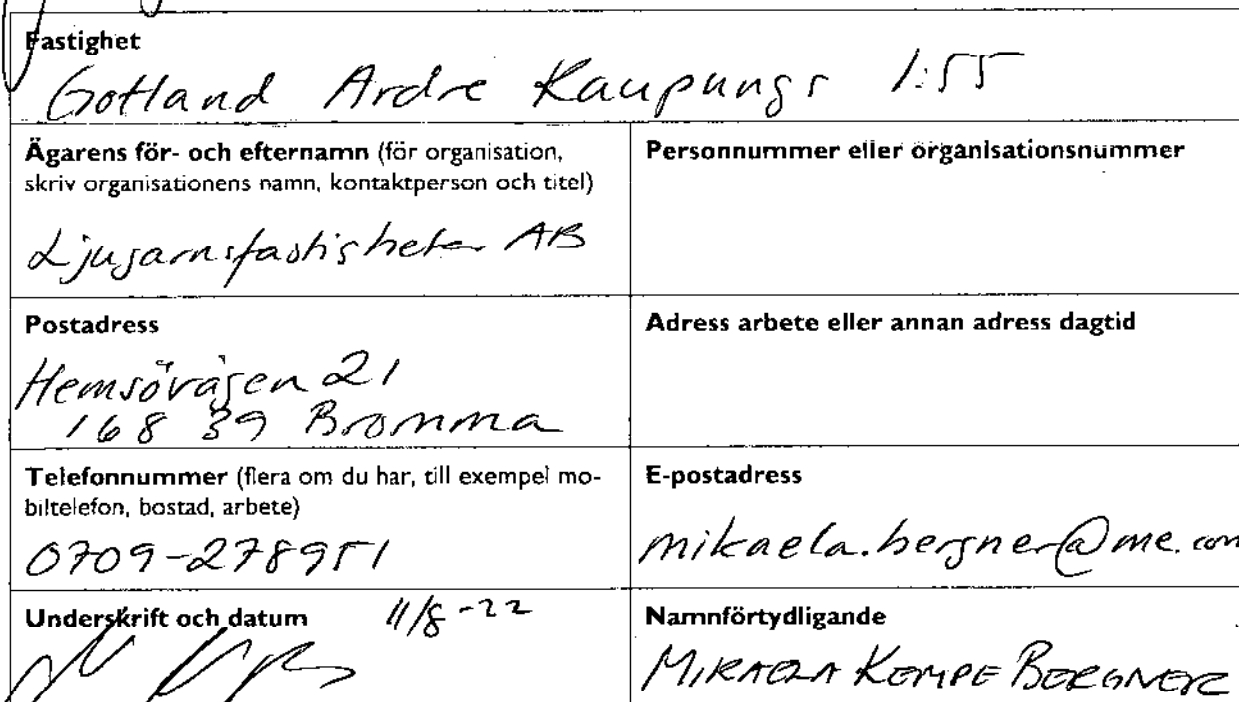 Fastighet
Gotland Ardre Kaupungs 1:55
Ägarens för- och efternamn (för organisation,
skriv organisationens namn, kontaktperson och titel)
Ljugarnsfastigheter AB
Personnummer eller organisationsnummer
Postadress
Hemsövägen 21
168 39 Bromma
Adress arbete eller annan adress dagtid
Telefonnummer (flera om du har, till exempel mo-
biltelefon, bostad, arbete)
0709-278951
E-postadress
mikaela.bergner@me.com
Underskrift och datum 11/8-22
Namnförtydligande
MIKAELA KEMPE BERGNER